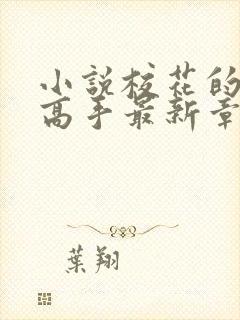 小說校花的
高手最新章
葉翔